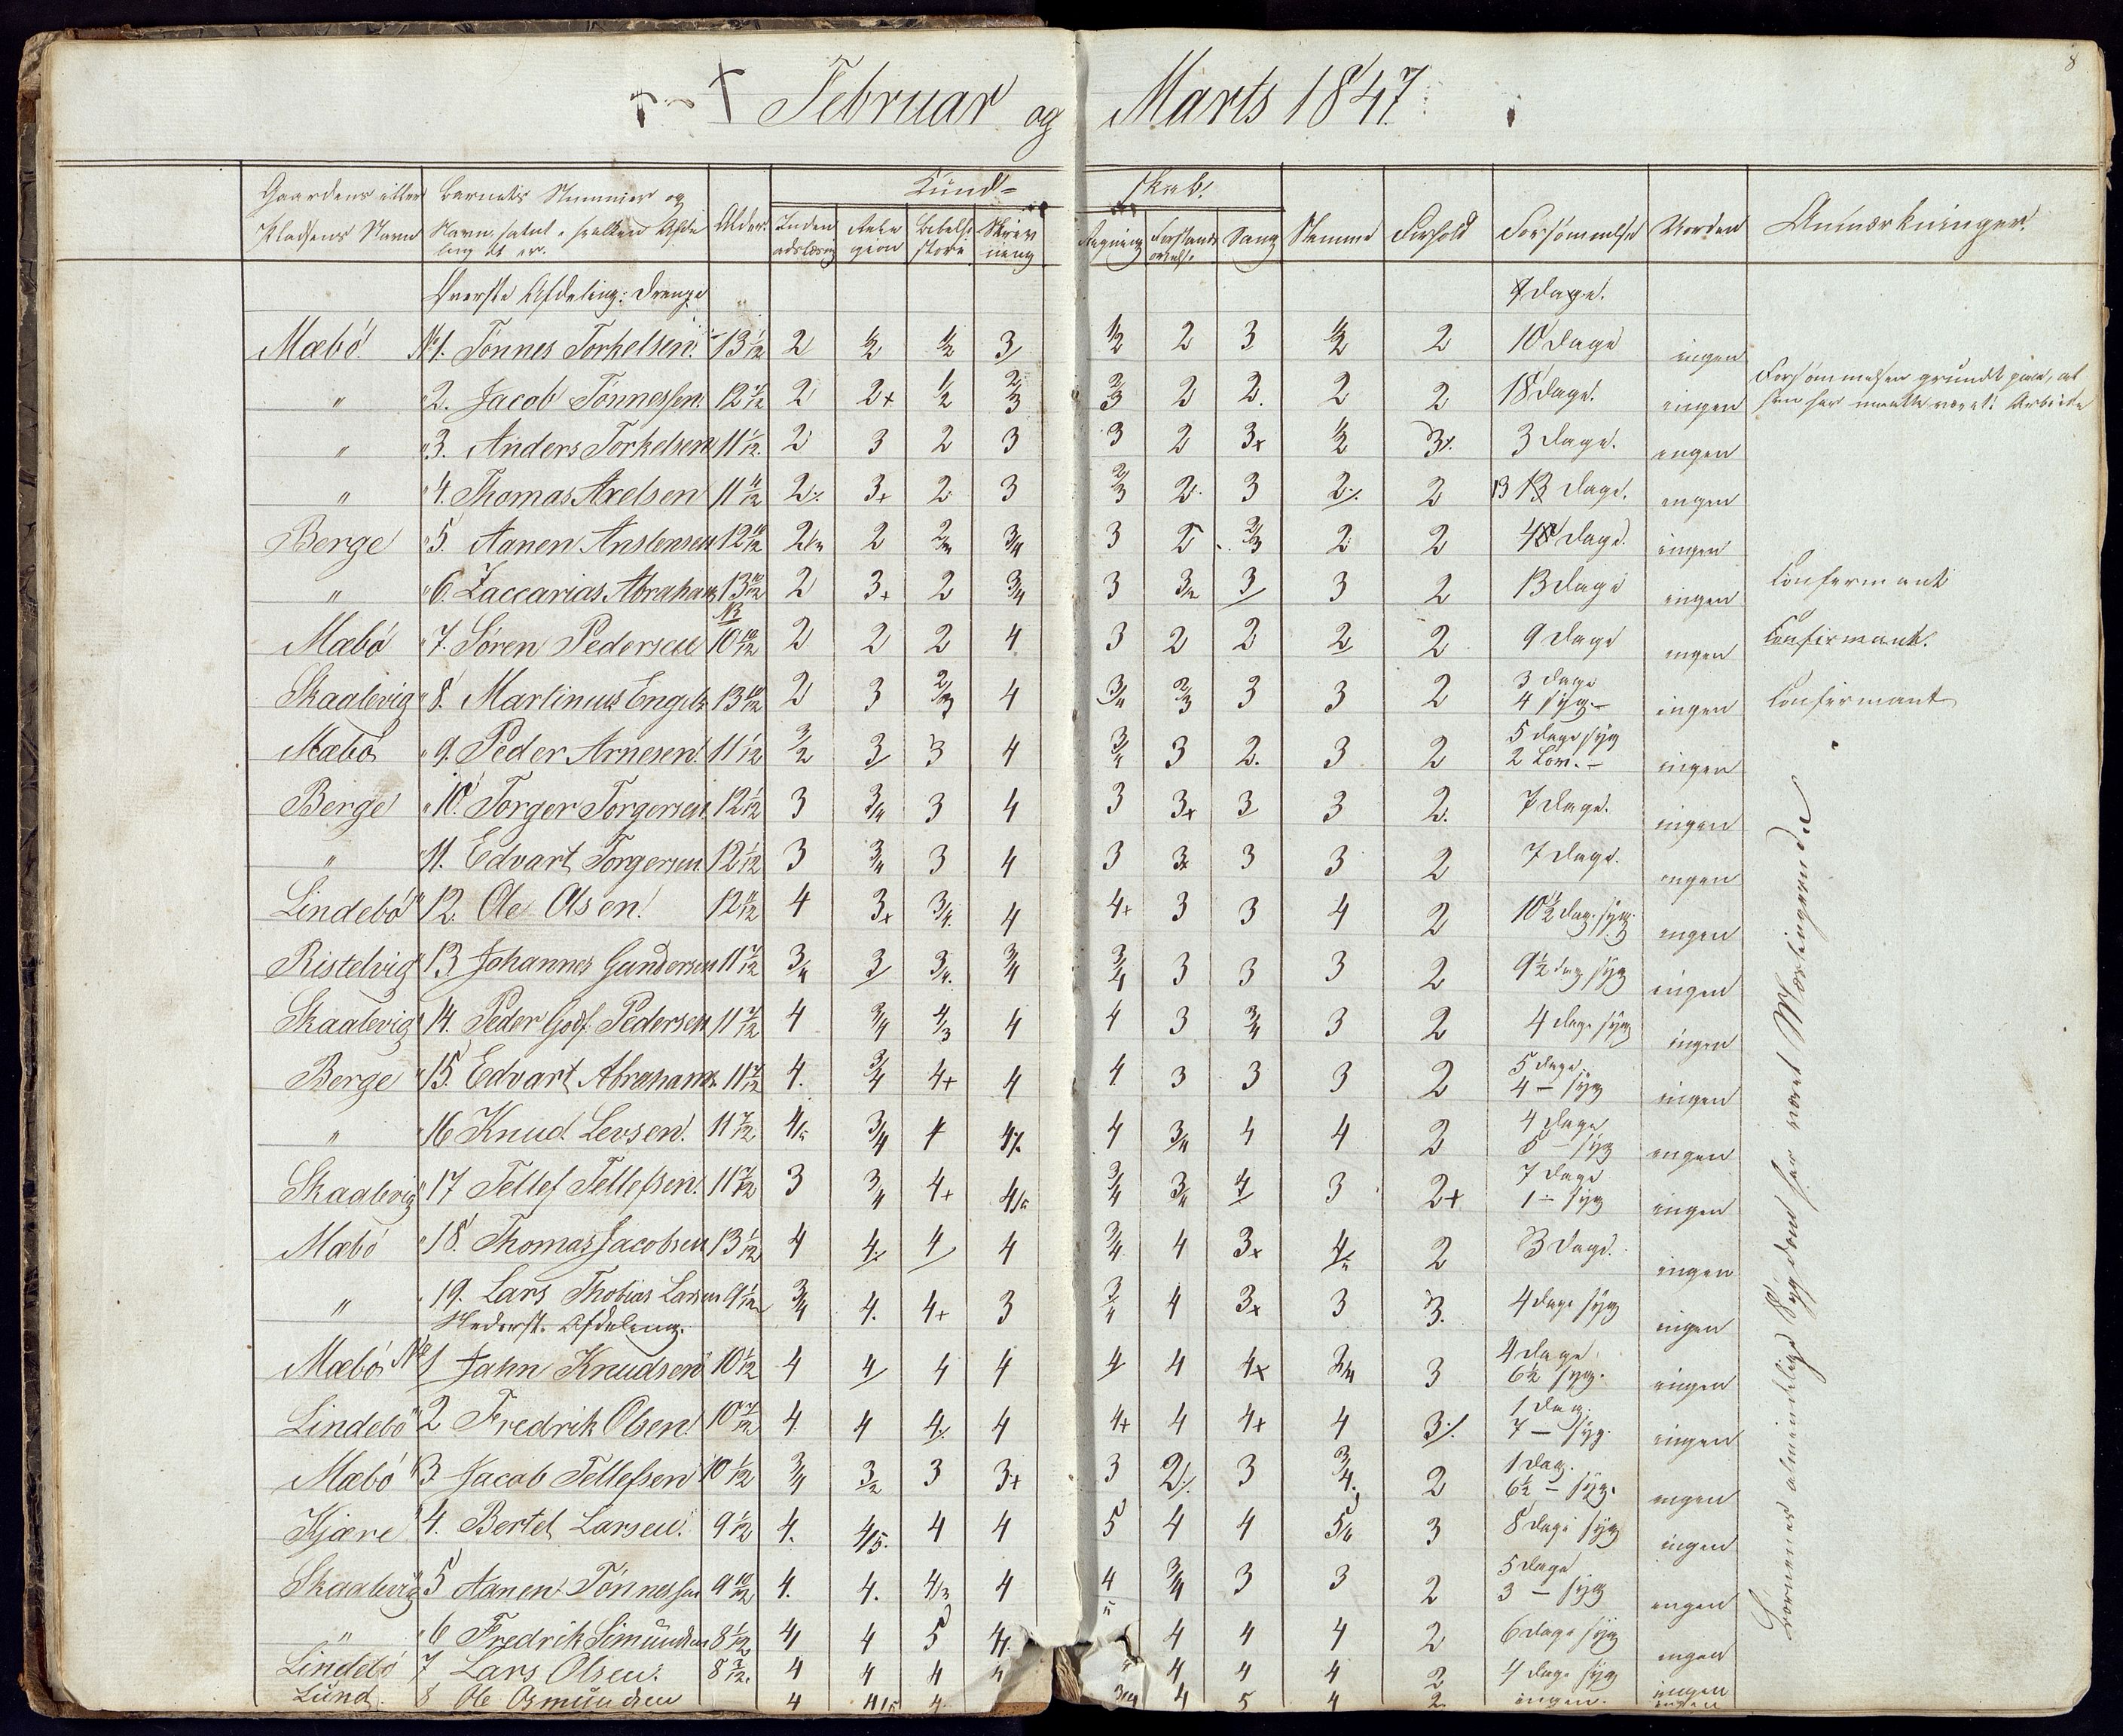 8
Februar og Marts 1847.
Gaardens eller Pladsens Navn | Barnets Nummer og Navn samt i hvilken Afdeling det er. | Alder. | Kund=skab. | Stemme | Forhold | Forsømmelse | Orden | Anmærkninger.
Religion | Bibelhistorie | Skrivning | Regning | Sang
Øverste Afdeling: Drenge | dage.
Mæbø No 1. Tønnes Torkelsen. 13 1/12 2 1/2 1/2 3 1/2 2 3 1/2 2 10 Dage ingen
" " 2. Jacob Tønnessen. 12 2 2+ 1/2 2/3 2/3 2 2. 2 2 18 Dage. ingen Forsømmelsen
" " 3. Anders Torkelsen 11 1/12 2 3 2 3 3 2 3+ 1/2 3 3 Dage. ingen
" " 4. Thomas Axelsen 11 2 3+ 2 3 2/3 2 3 2 2 13 Dage. ingen
Berge " 5. Aanen Anstensen 12 2 2 2/3 3/4 3 2 2/3 2 2 4 Dage. ingen
" " 6. Zaccarias Abrahams 13 2 3+ 2 3/4 3 3 3 2 13 Dage ingen Confermant
Mæbø " 7. Søren Pedersen 10 10/12 2 2 2 4 3 2 2 2 2 9 Dage ingen Confirmant.
Skaalevig " 8. Martinus Engels 13 2 3 2/3 4 3/4 2/3 3 3 2 3 Dage 4 syg - ingen Confirmant
Mæbø " 9. Peder Arnesen. 11 1/12 3/2 3 3 4 3/4 3 2. 3 2 5 Dage syg 2 Lov. - ingen
Berge " 10. Torger Torgersen 12 1/12 3 3/4 3 4 3 3+ 3 3 2. 7 Dage. ingen
" " 11. Edvart Torgersen 12 1/12 3 3/4 3 4 3 3+ 3 3 2 7 Dage. ingen
Lindebø " 12. Ole Olsen. 12 4 3+ 3/4 4 4+ 3 3 4 2 10 1/2 Dag. syg. ingen
Ristelvig " 13 Johannes Gundersen 11 3/4 3 3/4 3/4 3/4 3 3 3 2 9 1/2 dag syg ingen
Skaalevig " 14. Peder Godf. Pedersen 11 7/12 4 3/4 4/3 4 4 3 3/4 3 2 4 dage syg ingen
Berge " 15. Edvart Abrahams. 11 4. 3/4 4+ 4 4 3 3 3 2 5 Dage. 4 - syg ingen
" " 16 Knud Levsen. 11 7/12 3/4 4 4 3/4 4 4 2 4 Dage - syg ingen
Skaalevig " 17 Tellef Tellefsen. 11 3 3/4 4+ 3/4 3/4 4 3 2+ 7 Dage 1 - syg ingen
Mæbø " 18. Thomas Jacobsen 13 1/12 4 4 4 4 3/4 4 3+ 4 2 3 Dage. ingen
" " 19. Lars Thobias Larsen 9 3/4 4. 4+ 3 3/4 4 3+ 3 3. 4 dage syg ingen
Nederst. Afdeling.
Mæbø No 1 Jahn Knudsen 10 1/12 4 4 4 4 4 4 4+ 3/4 3 4 Dage 6 1/2 syg. ingen
Lindebø " 2 Fredrik Olsen. 10 7/12 4. 4 4 4 4+ 4 4+ 4 3 1 Dag. 7 - syg. ingen
Mæbø " 3. Jacob Tellefsen 10 1/12 3/4 3/2 3 3+ 3 2 3 3/4. 2 1 Dag. 6 1/2 - syg. ingen
Kjære " 4. Bertel Larsen. 9 1/12 4. 4/5. 4 4 5 4 4 3 8 dage syg ingen
Skaalevig " 5 Aanen Tønnessen 9 10/12 4. 4. 4/3 4 4 3/4 3 3 2 5 Dage 3 - syg ingen
" " 6 Fredrik Simundsen 8 1/12 4 4 5 4. 4 4 4 2 6 dage syg ingen
Lindebø 7 Lars Olsen. 8 4 4 4 4 4 4 4 2 4 dage syg ingen
Lund 8 Ole Osmundsen 4 4/5 4. 3/4 4 5 4 2 ingen. ingen
Børnenes almindelige Sygdom har været Mæslingerne